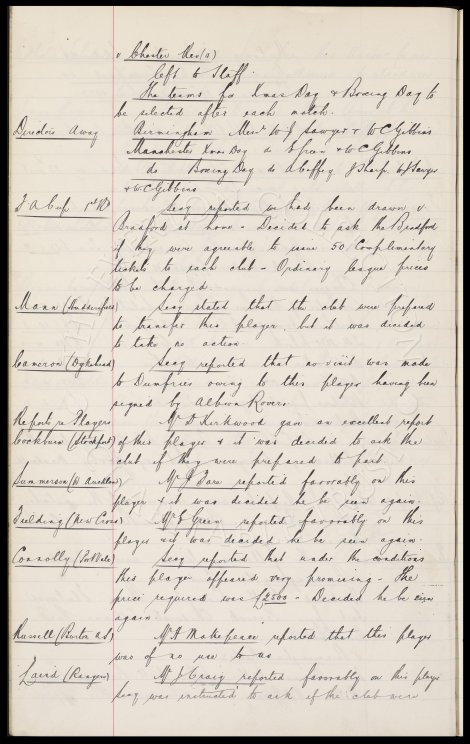 v Chester Res(a)
left to Staff.
The teams for Xmas Day & Boxing Day to
be selected after each match.
Directors Away Birmingham Messrs W J Sawyer & W C Gibbins
Manchester Xmas Day do E Green & W C Gibbins
do Boxing Day do A Gaffey J Sharp W J Sawyer
& W C Gibbins
F A Cup 1st Rd Secy reported we had been drawn v
Bradford at home - Decided to ask the Bradford
if they were agreeable to issue 50 Complimentary
tickets to each club - Ordinary league prices
to be charged.
Mann (Huddersfield) Secy stated that the club were prepared
to transfer this player, but it was decided
to take no action
Cameron (Dykehead) Secy reported that no visit was made
to Dumfries owing to this player having been
signed by Albion Rovers
Reports re Players Mr D Kirkwood gave an excellent report
Cockburn (Stockport) of this player & it was decided to ask the
club if they were prepared to part
Summerson (B Auckland) Mr J Fare reported favorably on this
player & it was decided he be seen again.
Fielding (New Cross) Mr E Green reported favorably on this
player & it was decided he be seen again.
Connolly (Port Vale) Secy reported that under the conditions
this player appeared very promising - The
price required was £2500 - Decided he be seen
again.
Russell (Burton a.s) Mr H Makepeace reported that this player
was of no use to us
Laird (Rangers) Mr J Craig reported favorably on this player
Secy was instructed to ask if the club were